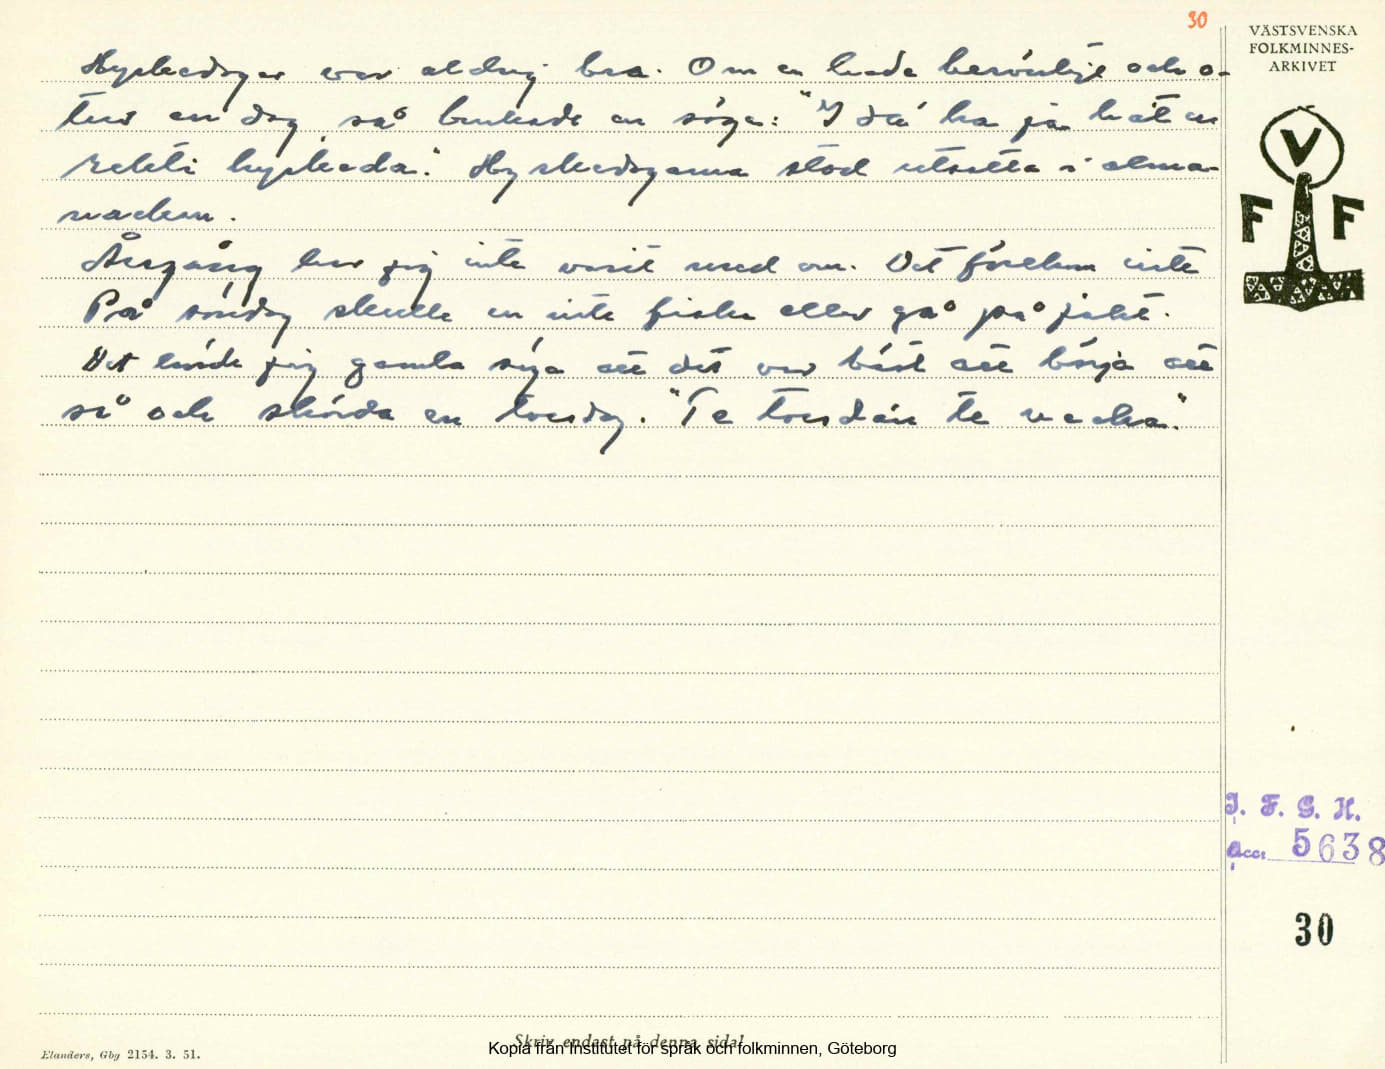 30
VÄSTSVENSKA
FOLKMINNES-
ARKIVET
V
F F
var aldrig bra. Om en hade besvärlije och o-
tur en dag så brukade en säga: "I da' ha ja hatt en
rekti
stod utsatta i alma-
nackan.
Årsgång har jag inte varit med om. Det förekom inte
På söndag skulle en inte fiska eller gå på jakt.
Det hörde jag gamla säga att det var bäst att börja att
så och skörda en torsdag. "Ta torsdan te vecka."
I. F. G. H.
Acc: 5638
30
Skriv endast på denna sida!
Kopia från Institutet för språk och folkminnen, Göteborg
Elanders, Gbg 2154. 3. 51.